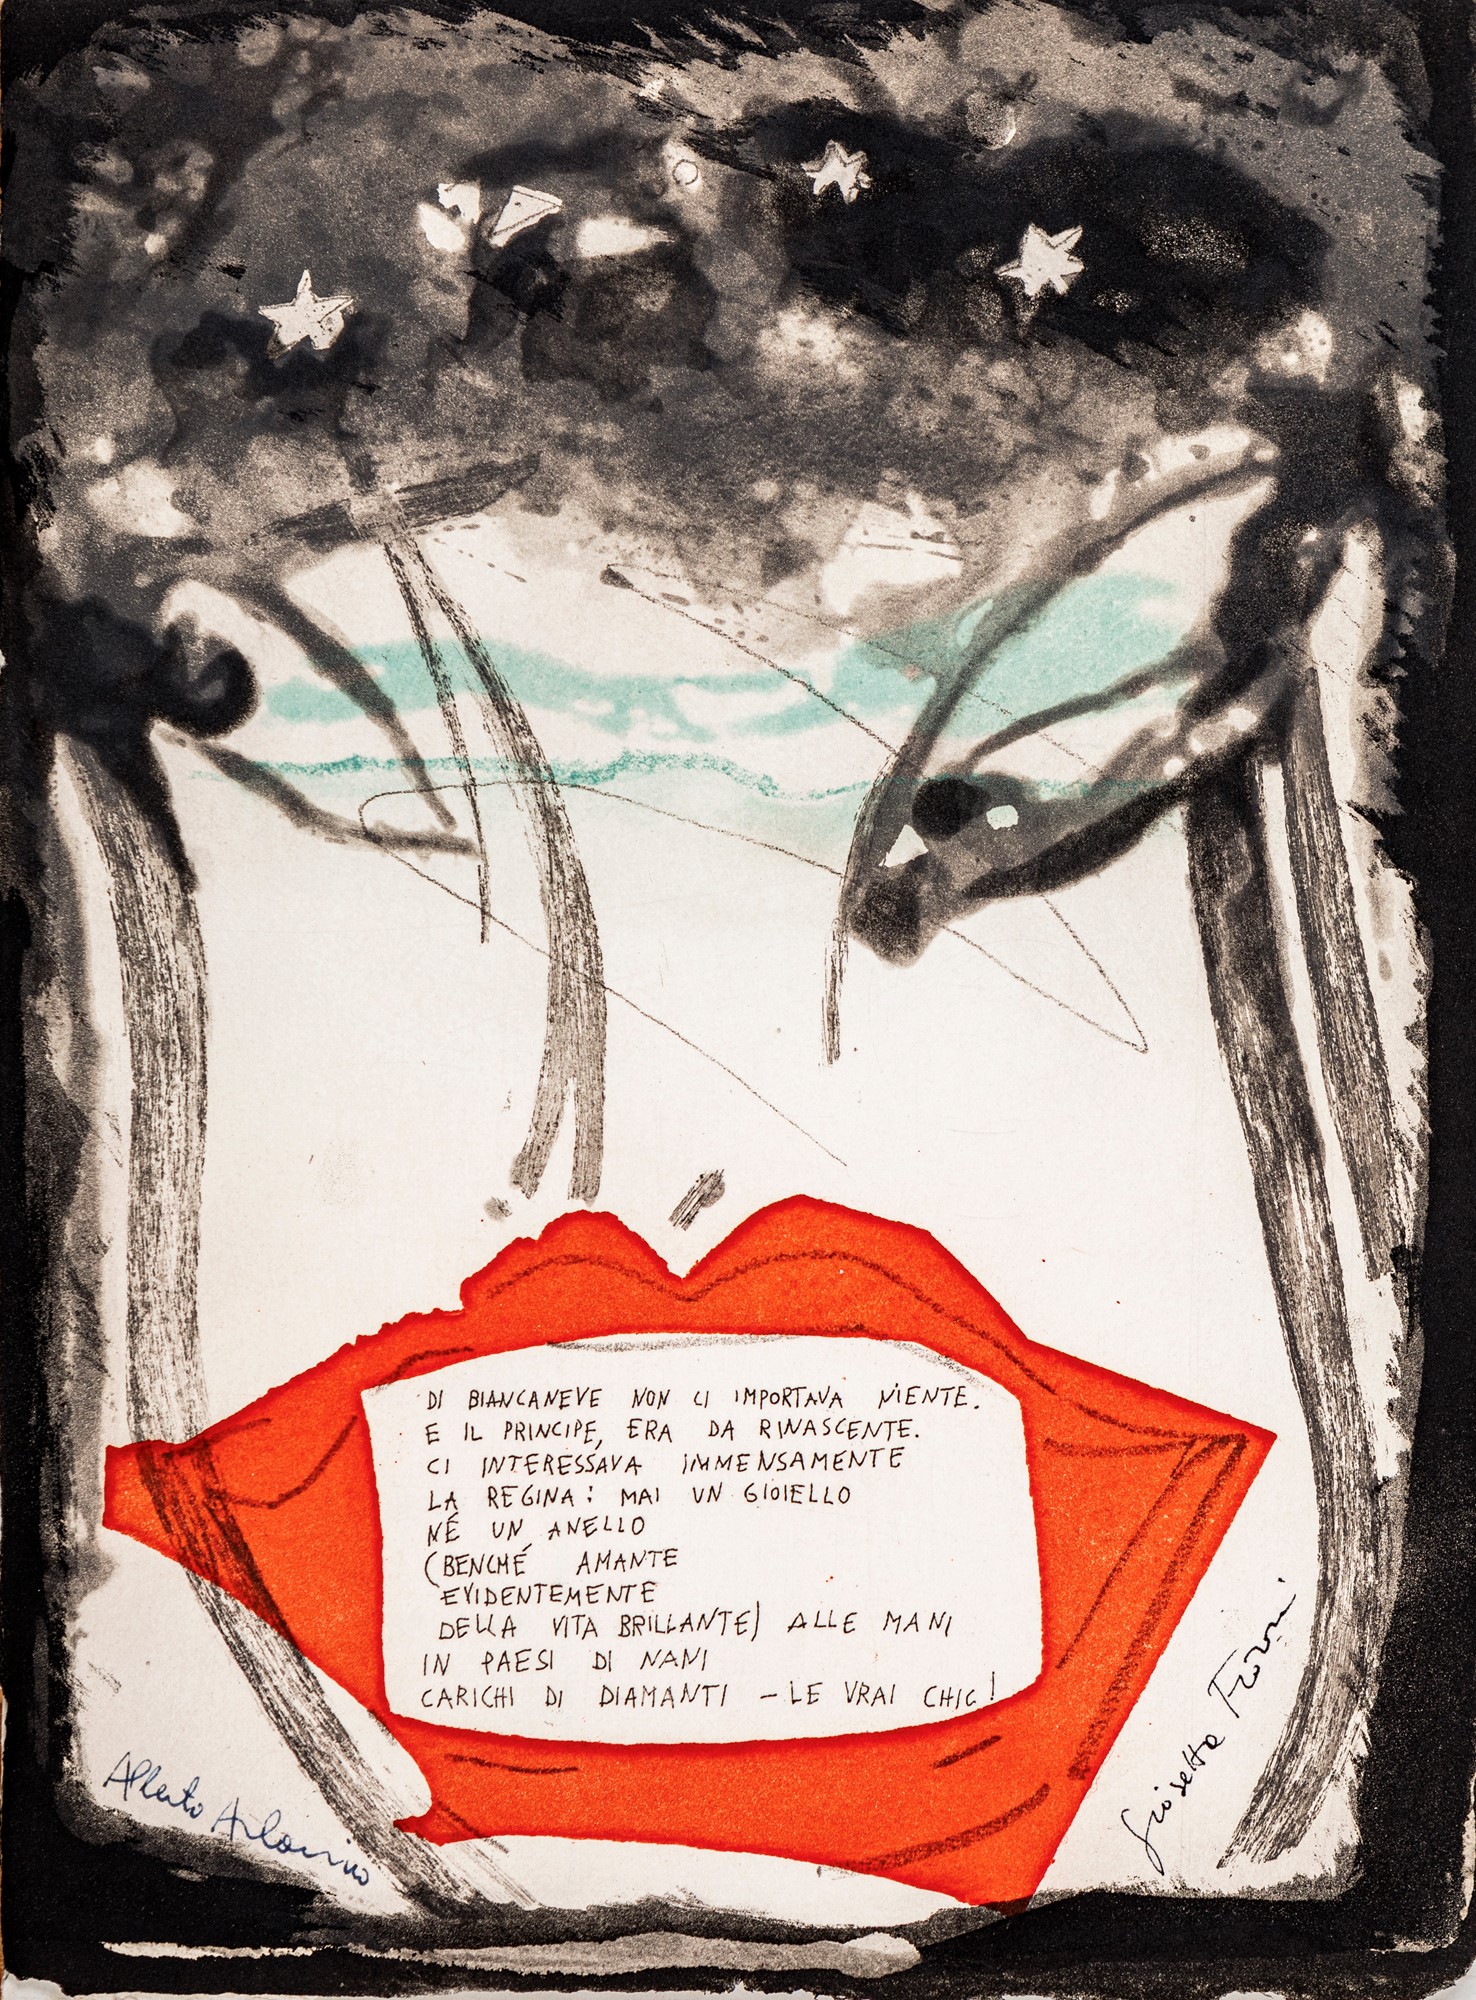 DI BIANCANEVE NON CI IMPORTAVA NIENTE.
E IL PRINCIPE, ERA DA RINASCENTE.
CI INTERESSAVA IMMENSAMENTE
LA REGINA: MAI UN GIOIELLO
NÉ UN ANELLO
(BENCHÉ AMANTE
EVIDENTEMENTE
DELLA VITA BRILLANTE) ALLE MANI
IN PAESI DI NANI
CARICHI DI DIAMANTI – LE VRAI CHIC!
Alberto Arbasino
Giosetta Fioroni